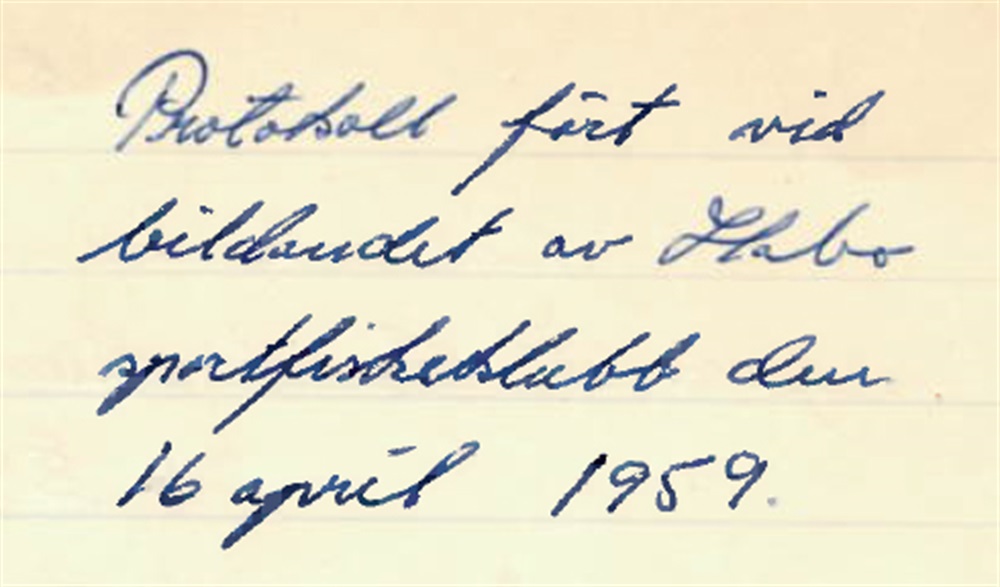 Protokoll fört vid
bildandet av Habo
sportfiskeklubb den
16 april 1959.